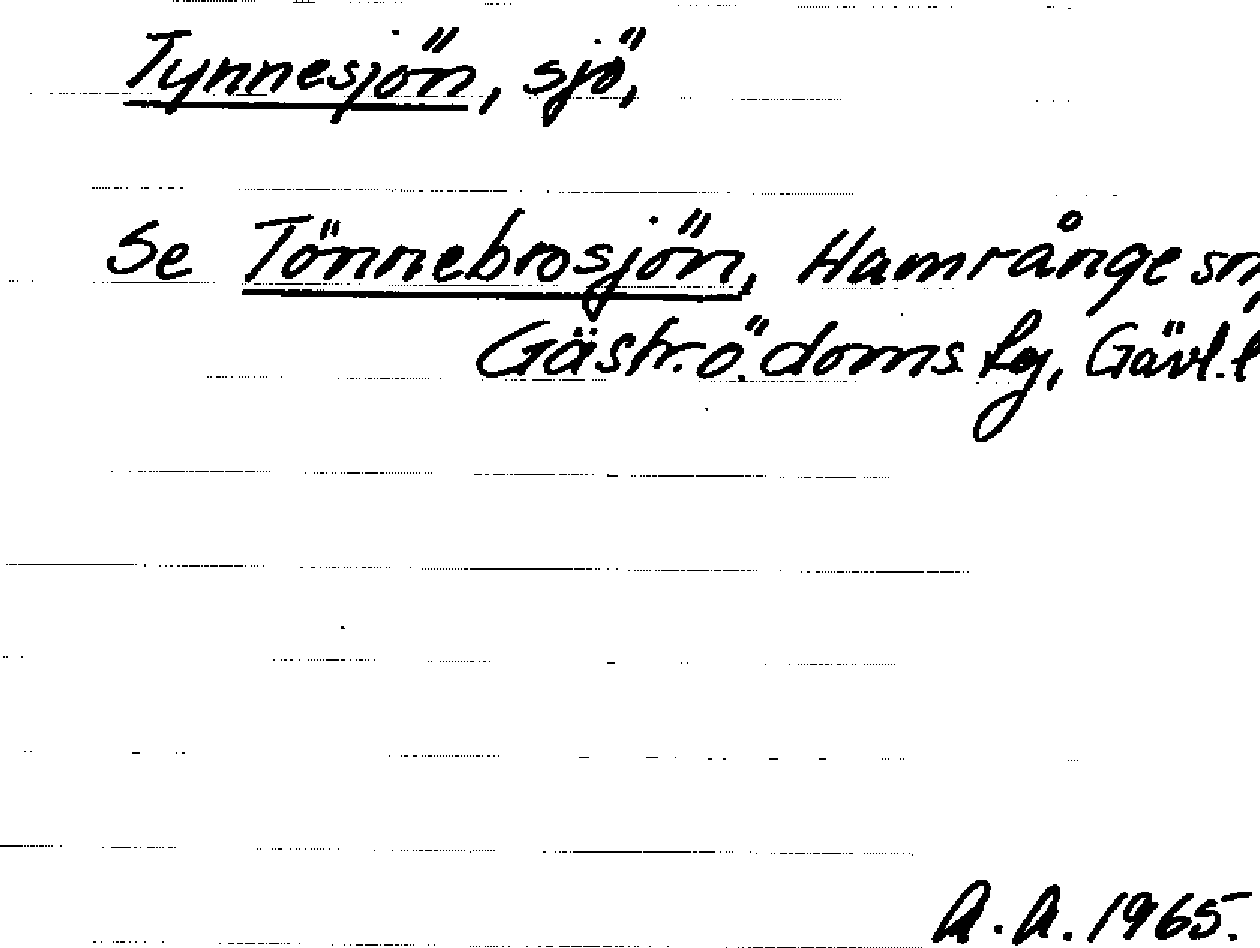 Tynnesjön, sjö,
Se Tönnebrosjön, Hamrånge sn,
Gästr.ö.doms. tg, Gävl.l
A.A. 1965.